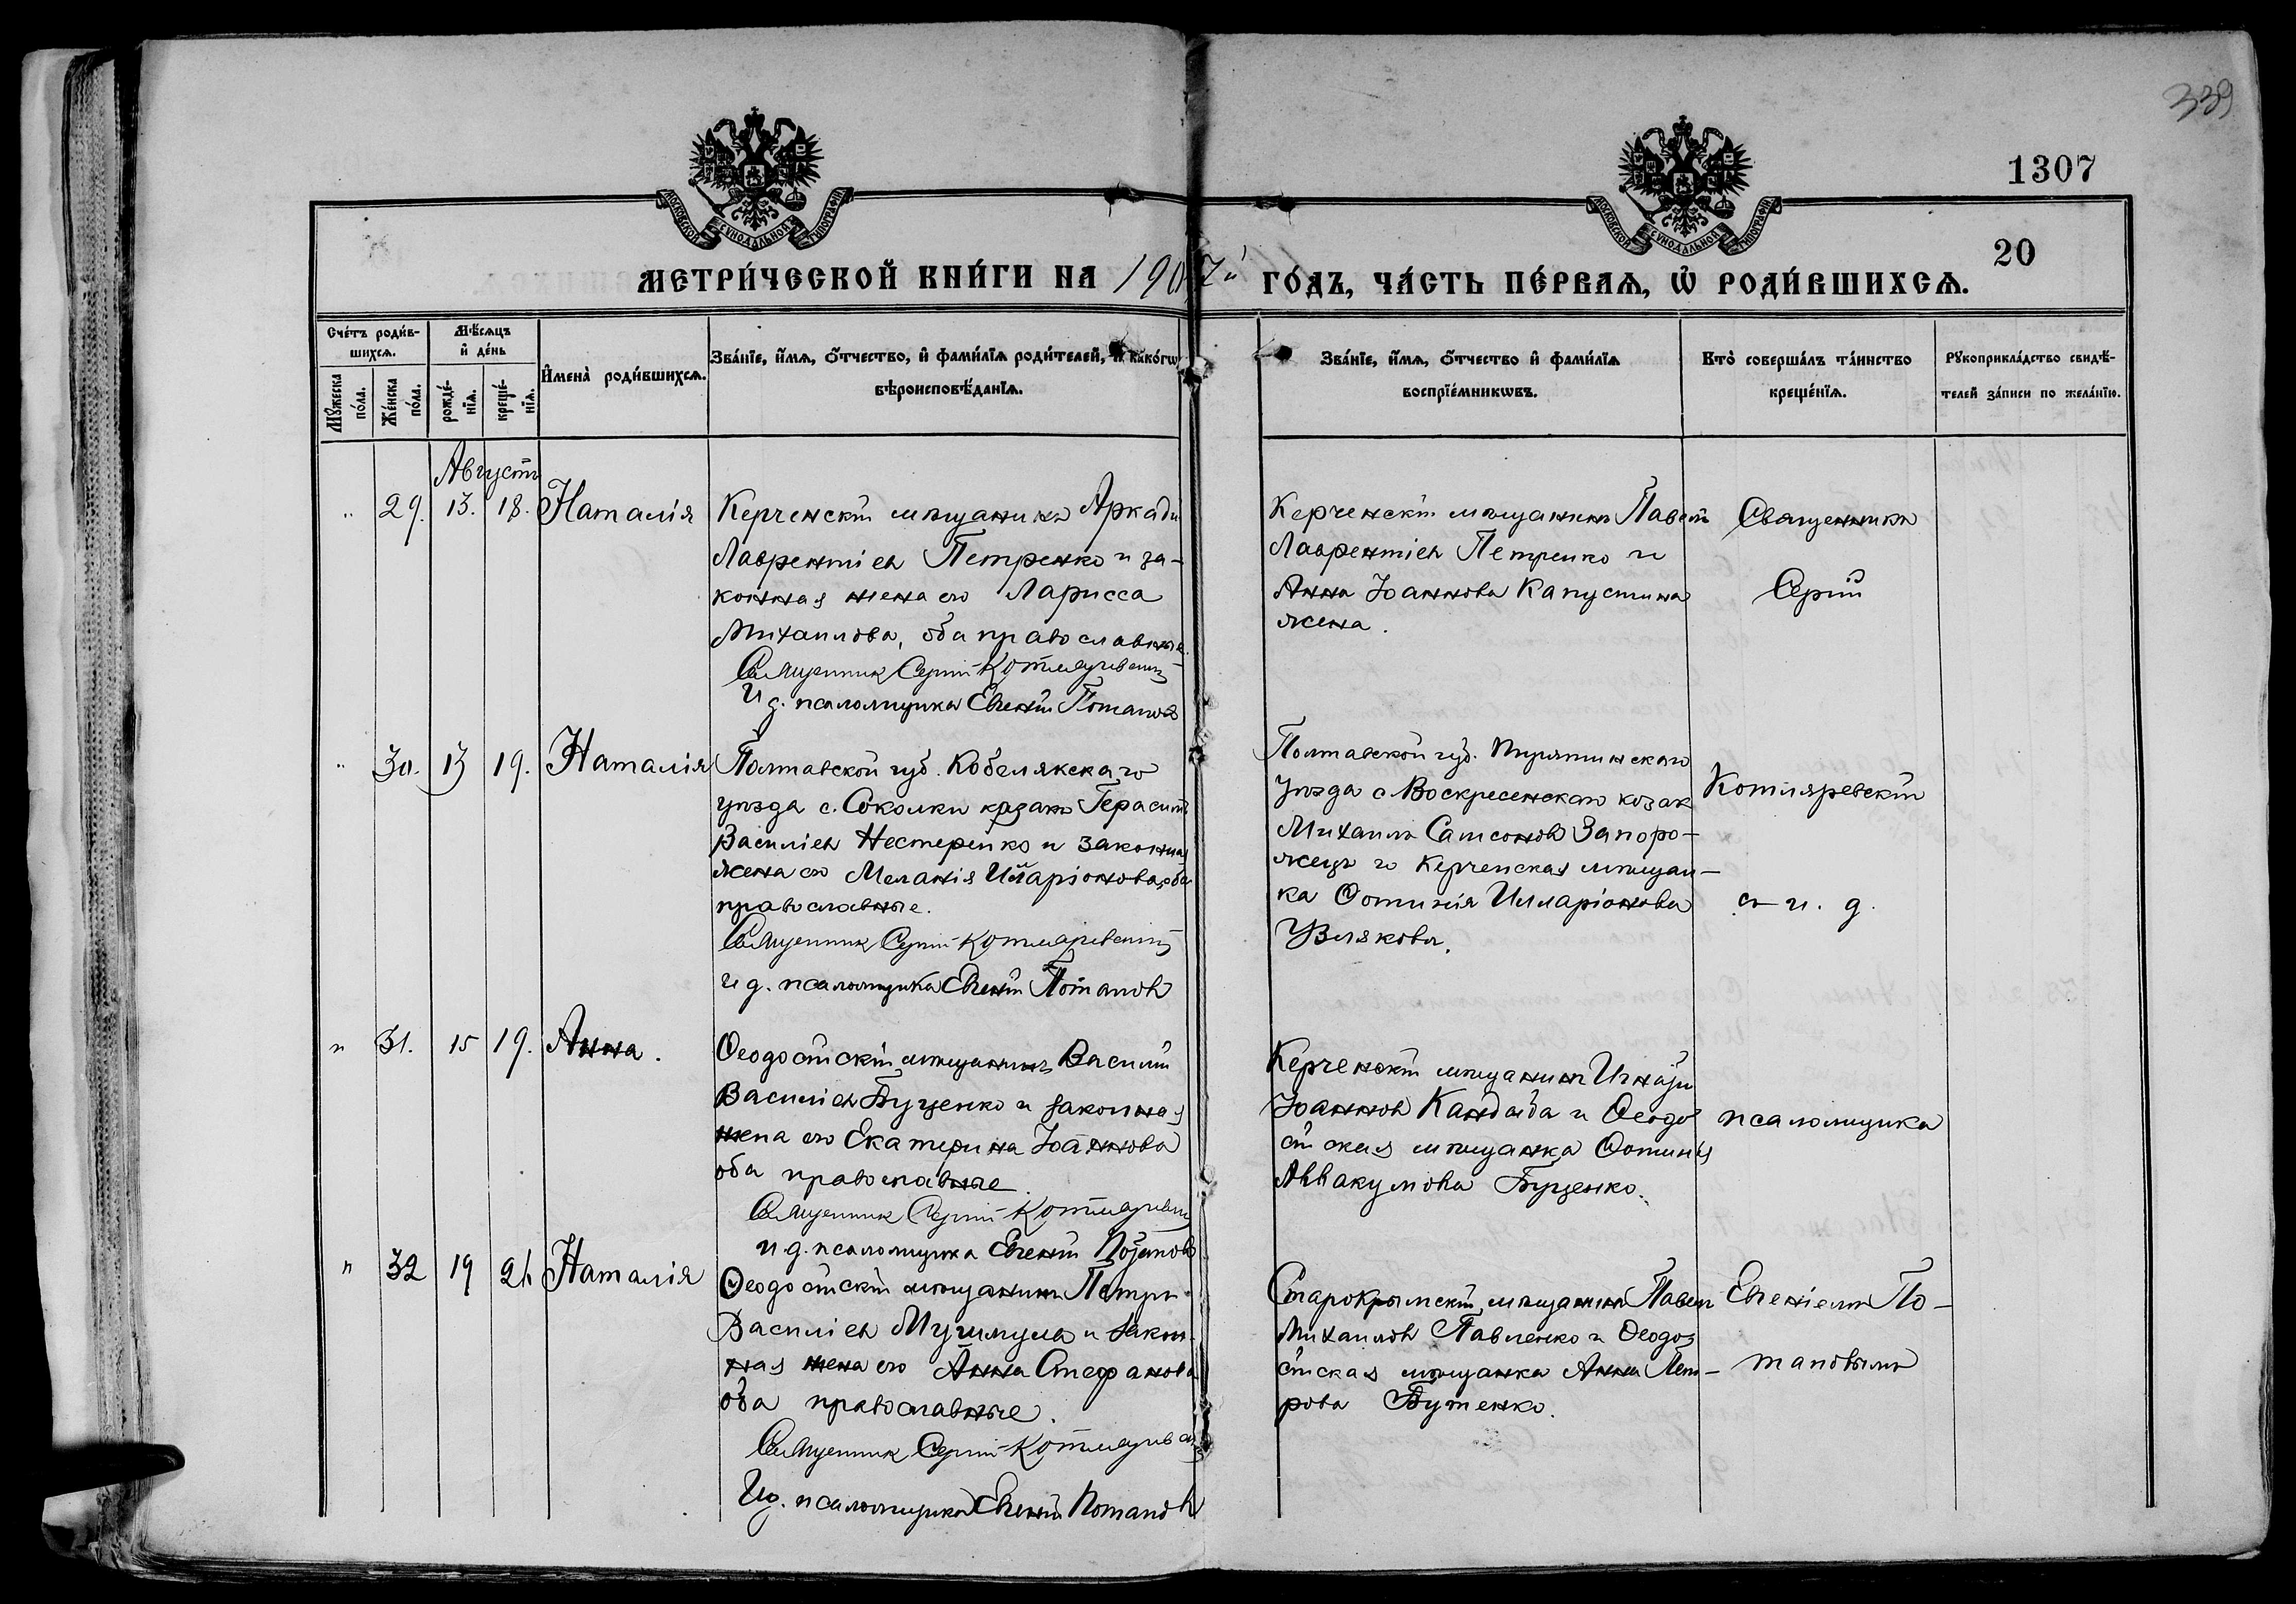 339
1307
20
МОСКОВСКОЙ СѴНОДАЛЬНОЙ ТИПОГРАФІИ
МОСКОВСКОЙ СѴНОДАЛЬНОЙ ТИПОГРАФІИ
МЕТРИ́ЧЕСКОЙ КНИ́ГИ НА 1907й ГО́ДЪ, ЧА́СТЬ ПЕ́РВАѦ, Ѡ҆ РОДИ́ВШИХСѦ.
Сче́тъ роди́в-
шихсѧ.
Мѣ́сѧцъ
и҆ де́нь
Мꙋ́жеска по́ла.
Же́нска по́ла.
рожде́-
нїѧ.
креще́-
нїѧ.
И҆мена̀ роди́вшихсѧ.
Зва́нїе, и҆́мѧ, ѻ҆́тчество, и҆ фами́лїѧ роди́телей, и҆ како́гѡ
вѣроисповѣ́данїѧ.
Зва́нїе, и҆́мѧ, ѻ҆́тчество и҆ фами́лїѧ
воспрїе́мникѡвъ.
Кто̀ соверша́лъ та́инство
креще́нїѧ.
Рꙋкоприкла́дство свидѣ́-
телей за́писи по жела́нїю.
Августъ
" 29. 13. 18. Наталія
Керченскій мѣщанинъ Аркадій
Лаврентіев Петренко и за-
конная жена его Ларисса
Михаилова, оба православные.
Священник Сергій Котляревскій
И д. псаломщика Евгеній Потапов
Керченскій мѣщанинъ Павел
Лаврентіев Петренко и
Анна Іоаннова Капустина
жена.
Священникъ
Сергій
" 30. 13 19. Наталія
Полтавской губ. Кобелякскаго
уѣзда с. Соколки казакъ Герасимъ
Василіев Нестеренко и законная
жена его Меланія Илларіонова, оба
православные.
Священник Сергій Котляревскій
и д. псаломщика Евгеній Потапов
Полтавской губ. Пирятинскаго
Уѣзда с Воскресенскаго козак
Михаилъ Самсонов Запоро-
жецъ и Керченская мѣщан-
ка Фотинія Илларіонова
Котляревскій
съ и. д.
" 31. 15 19. Анна.
Феодосійскій мѣщанинъ Василій
Василіев Буценко и законная
жена его Екатерина Іоаннова
оба православные.
Священник Сергій Котляревскій
и д. псаломщика Евгеній Потапов
Керченскій мѣщанин Игнатій
Іоаннов Кандыба и Феодо
сійская мѣщанка Фотинія
Аввакумова Буценко.
псаломщика
" 32 19 21 Наталія
Феодосійскій мѣщанинъ Петръ
Василіев и закон-
ная жена его Анна Стефанова
оба православные.
Священник Сергій Котляревскій
И д. псаломщика Евгеній Потапов
Старокрымскій мѣщанин Павел
Михаилов Павленко и Феодо
сійская мѣщанка Анна Пет-
рова Бутенко.
Евгеніемъ По-
таповымъ